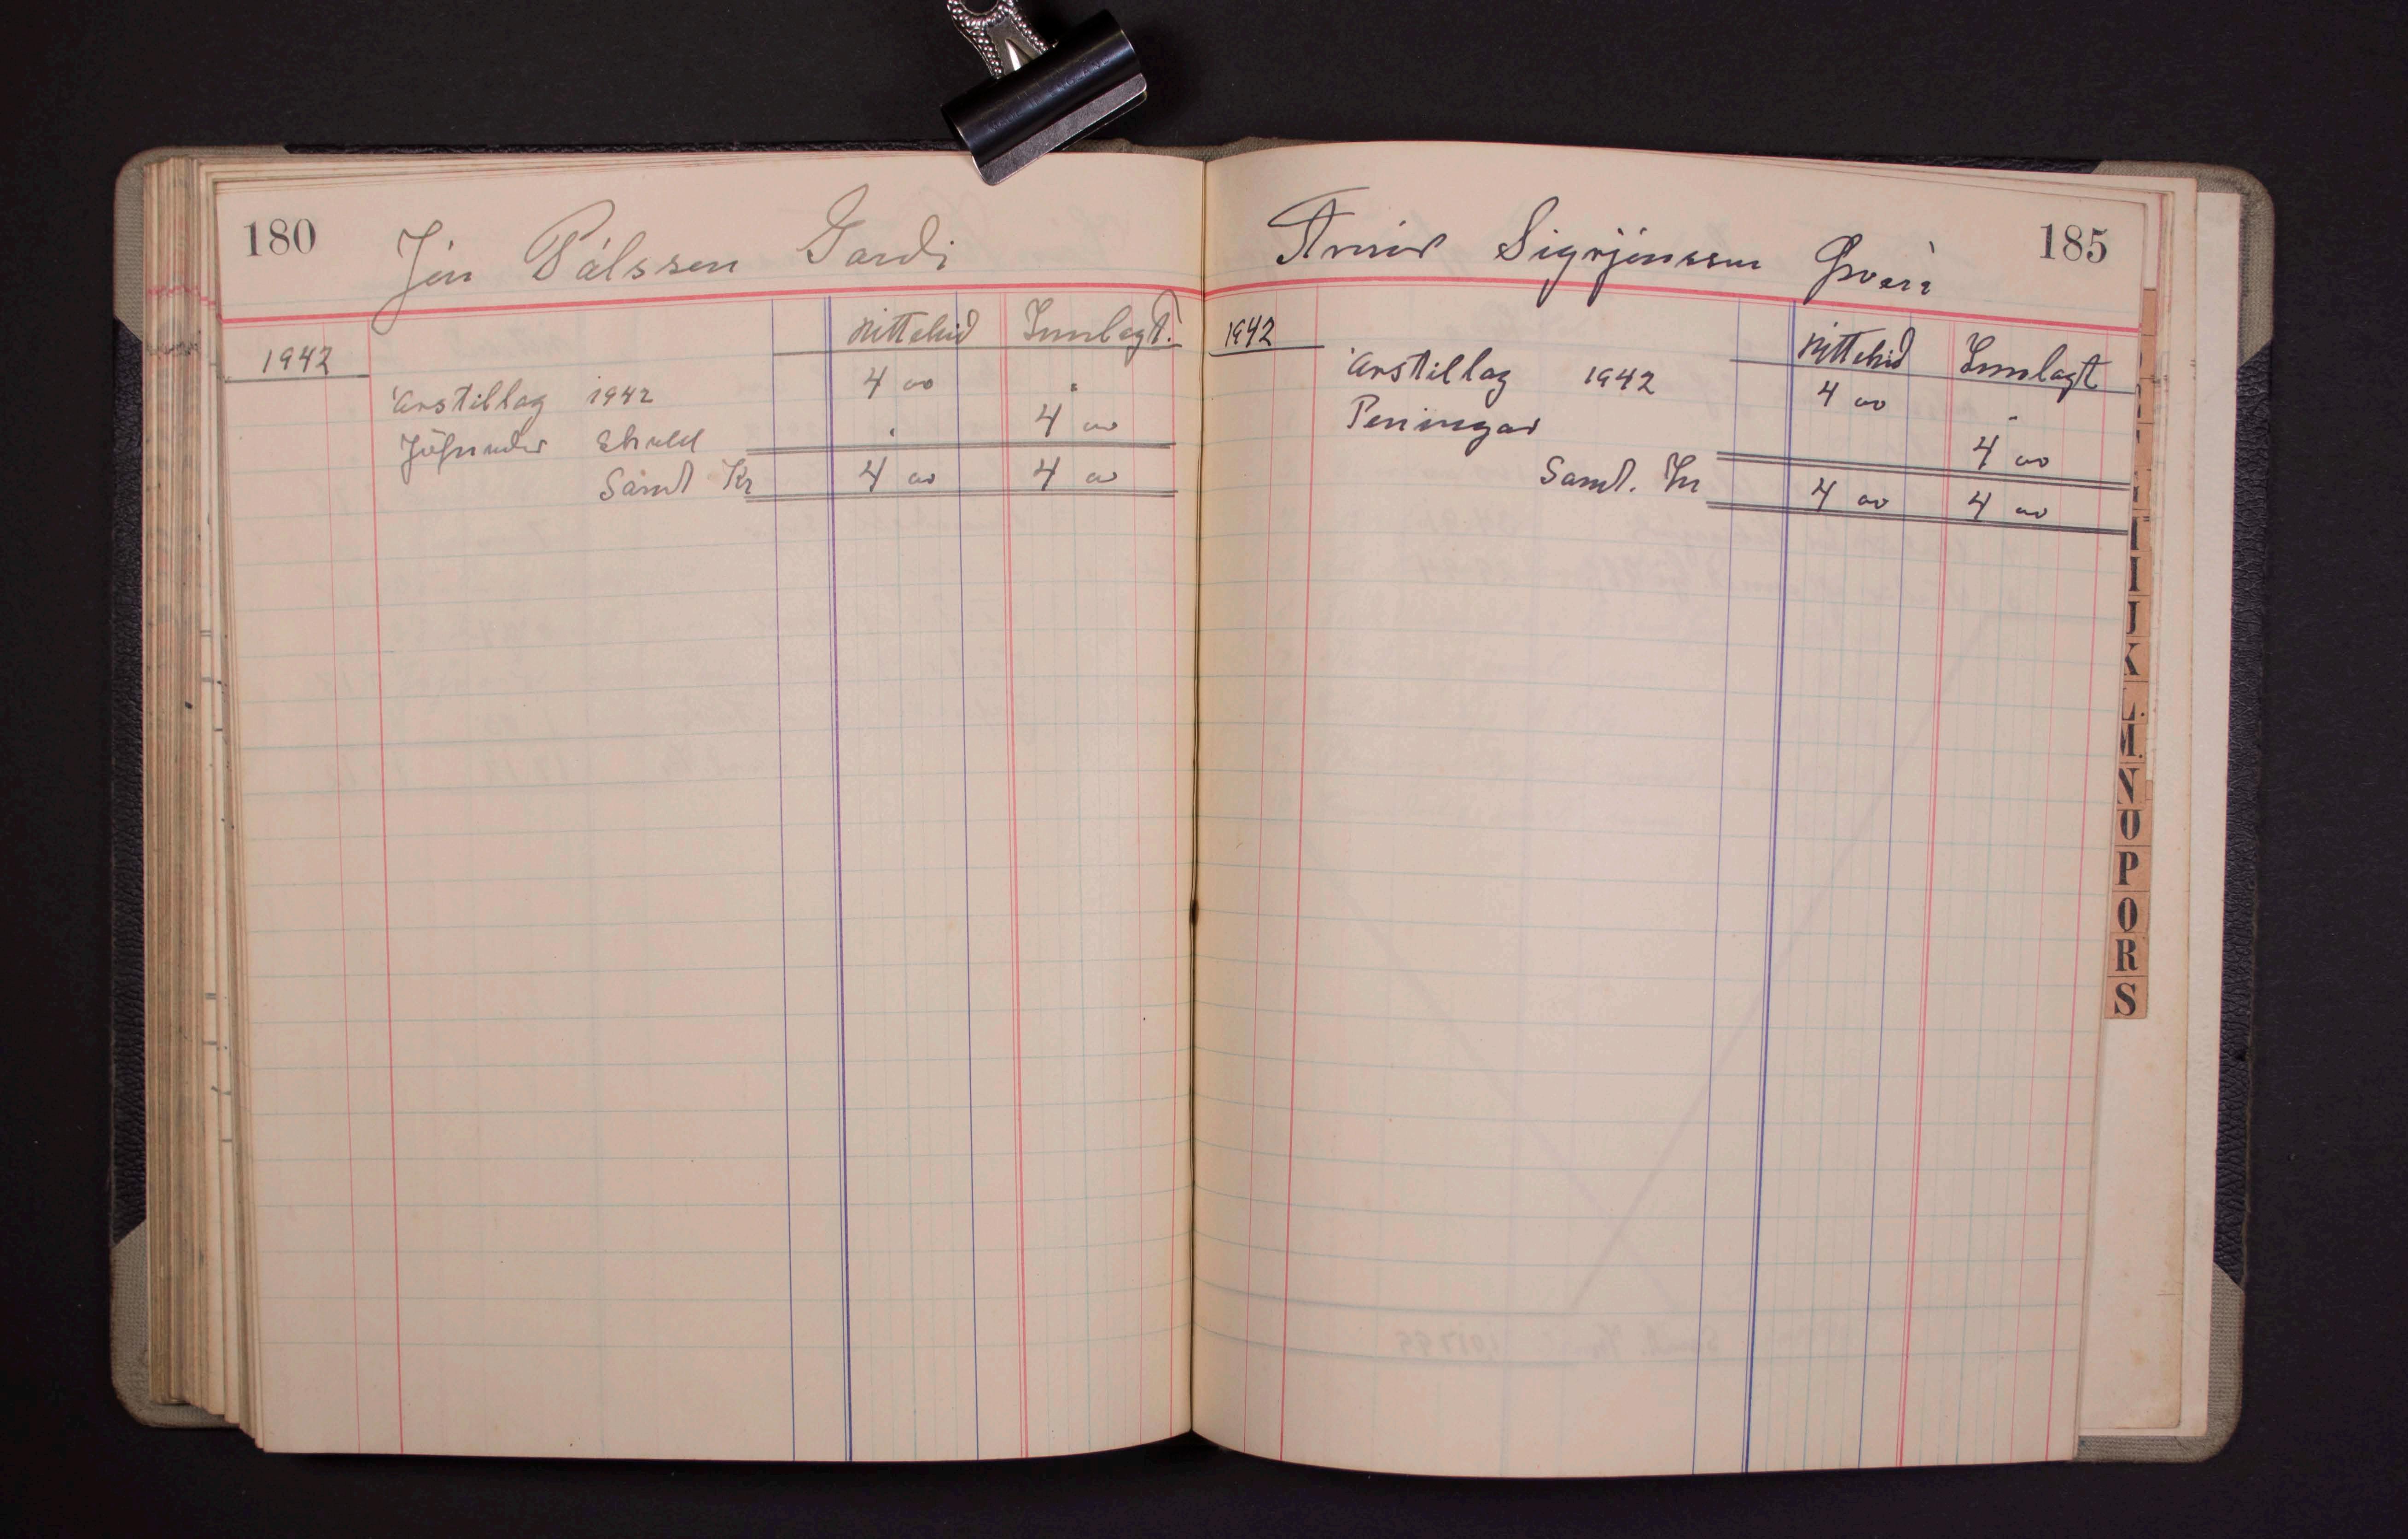 180
Jón Pálsson Garði
1942
Úttekið Innlagt.
Árstillag 1942 4 00 "
Jöfnuður Skuld " 4 00
Samt Kr 4 00 4 00
185
Árni Sigrjónsson Hveri
1942
Úttekið Innlagt
Árstillag 1942 4 00 "
Peningar 4 00
Samt. Kr 4 00 4 00
I
J
K
L.
M.
N
O
P
Q
R
S